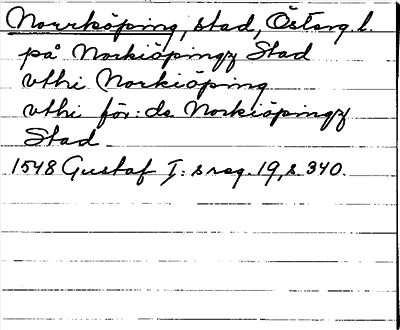 Norrköping, stad, Österg. l.
på Norkiöpingz Stad
vthi Norkiöping
vthi för: de Norkiöpingz
Stad
1548 Gustaf I: s reg. 19, s. 340.